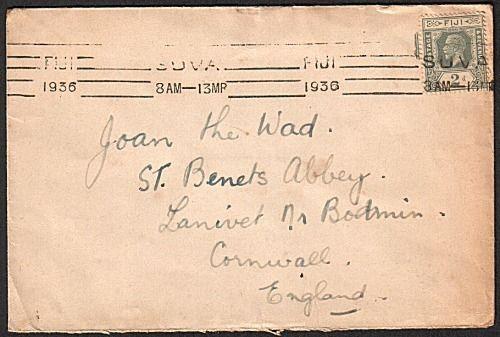 FIJI
POSTAGE
2d
FIJI SUVA FIJI SUVA
1936 8AM—13MR 1936 8AM—13MR
Joan the Wad.
St. Benets Abbey.
Lanivet Nr Bodmin.
Cornwall.
England.